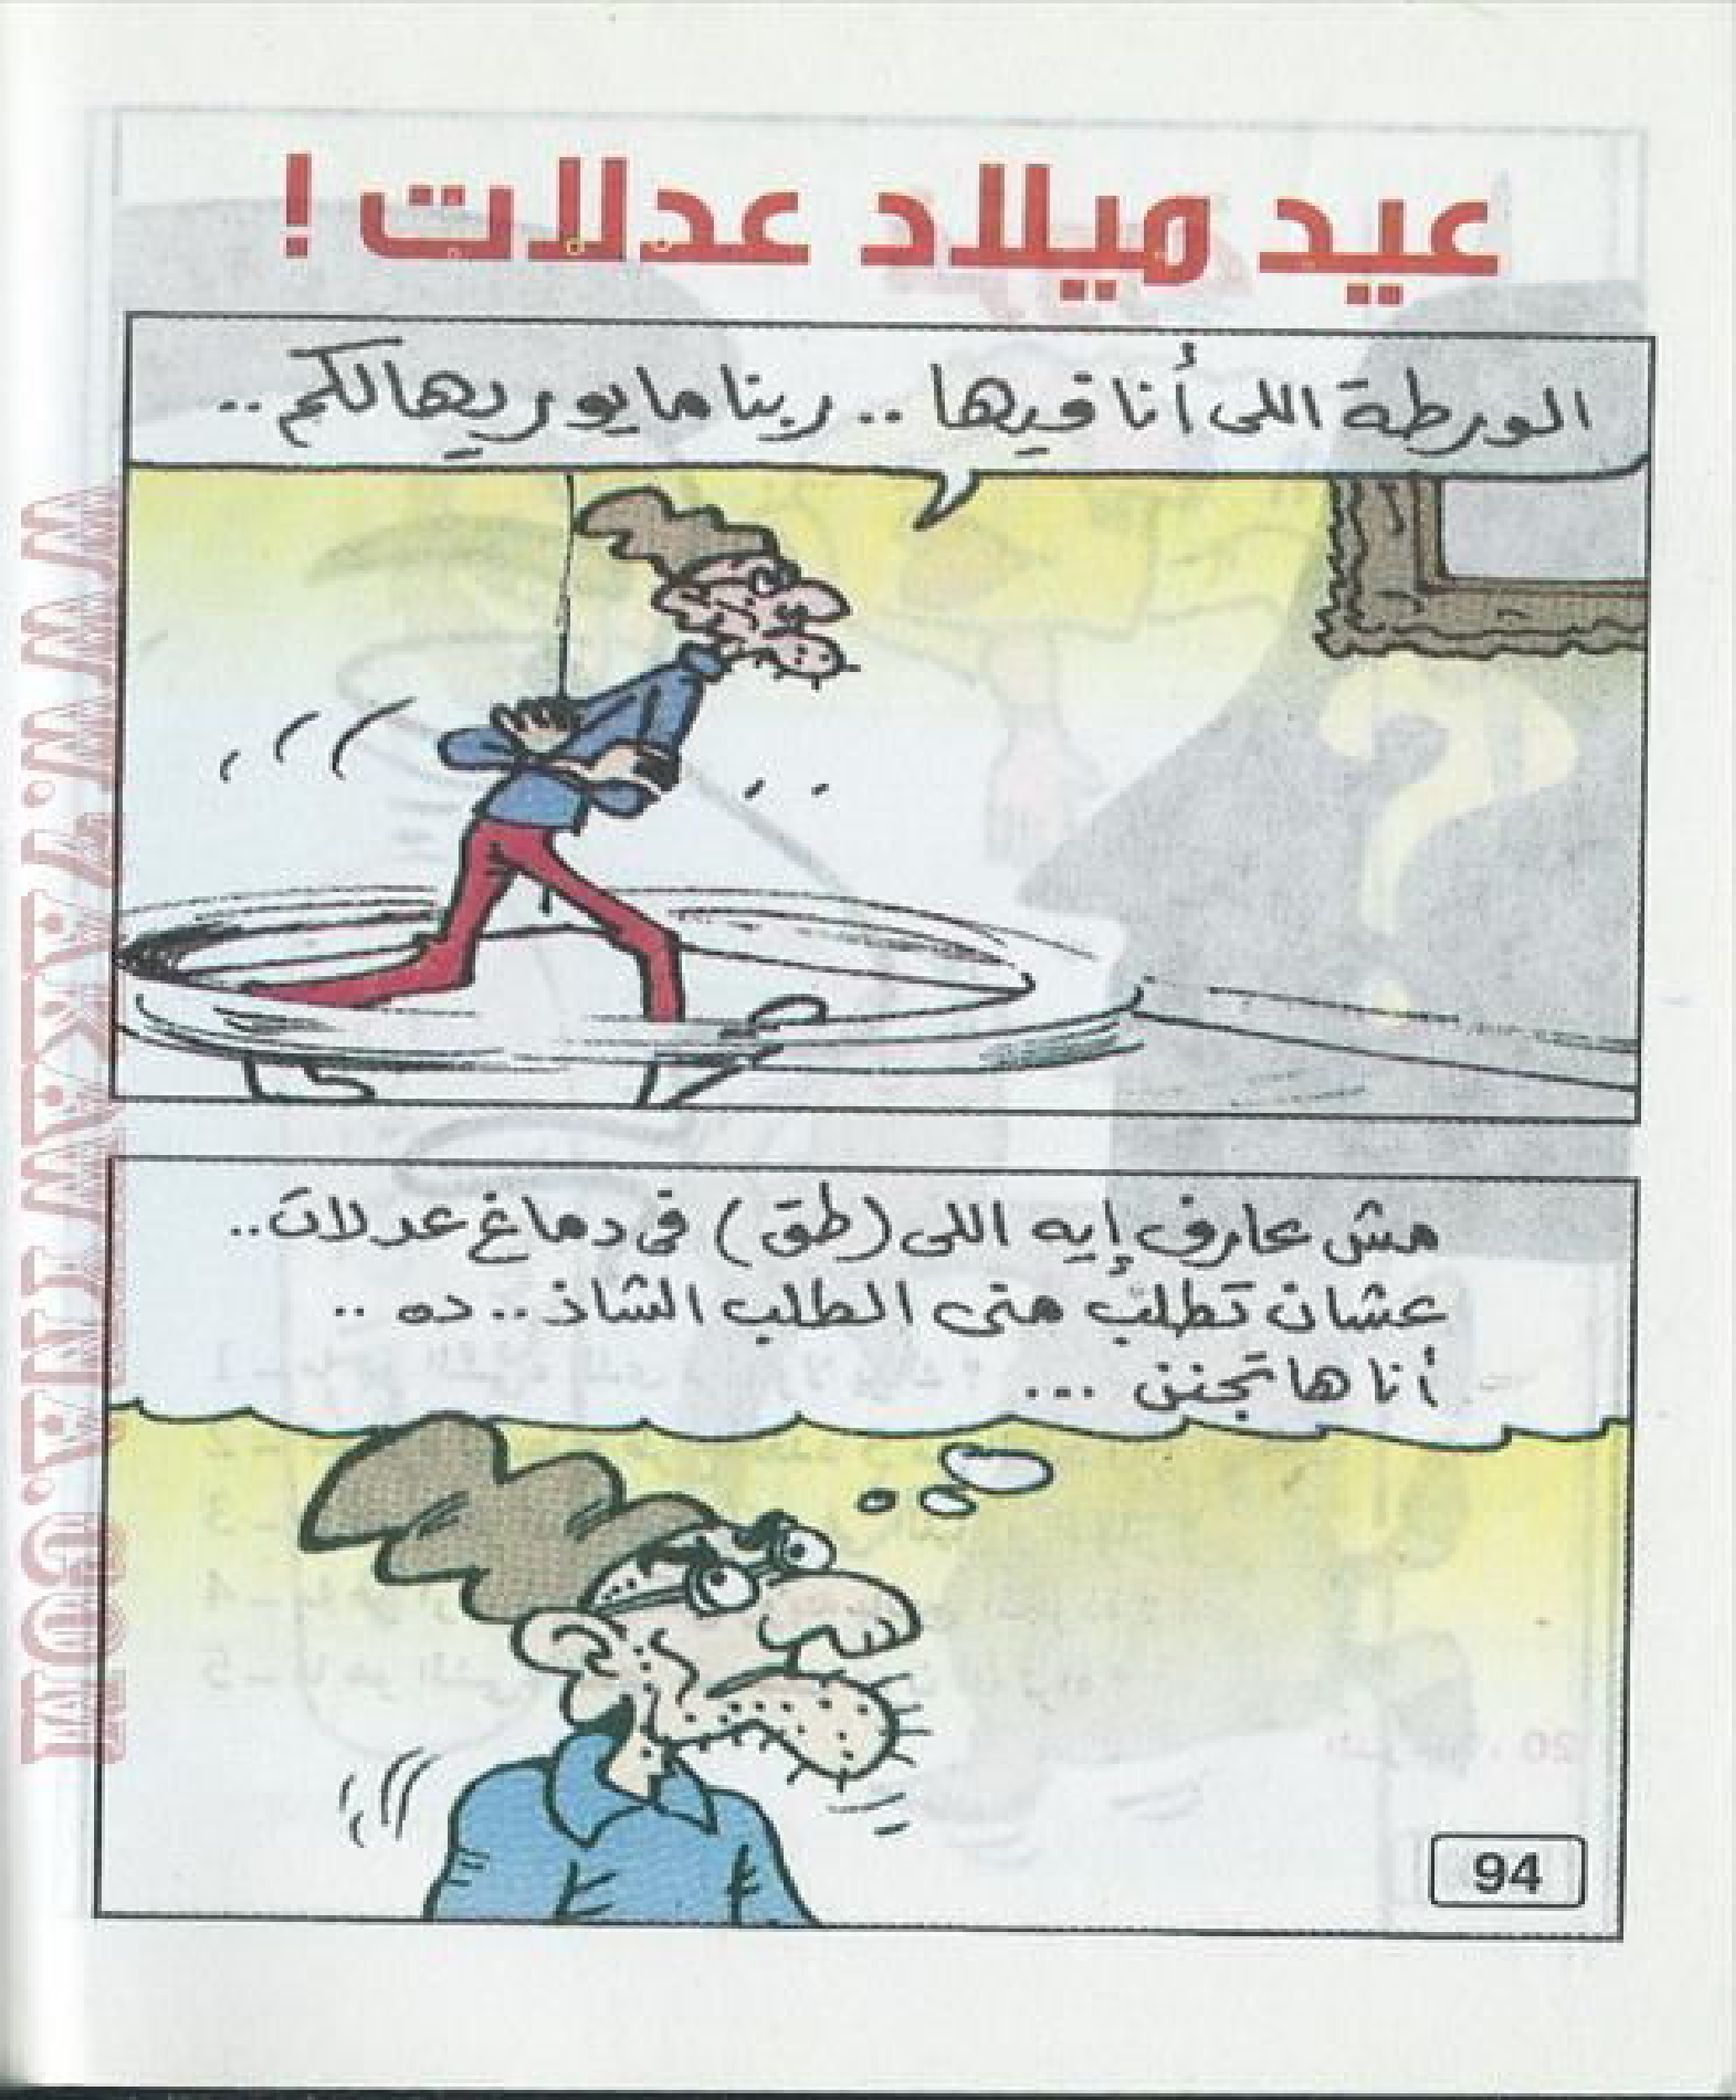 عيد ميلاد عدلات !
الورطة اللى أنا فيها .. ربنا ما يوريهالكم ..
مش عارف إيه اللى (طق) فى دماغ عدلات ..
عشان تطلب منى الطلب الشاذ .. ده ..
أنا هاتجنن ...
94
WWW.ZAKRAWYTNA.COM